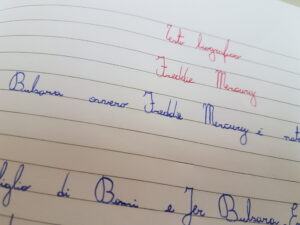 Testo biografico
Freddie Mercury
Bulsara ovvero Freddie Mercury è nat
figlio di Bomi e Jer Bulsara. E